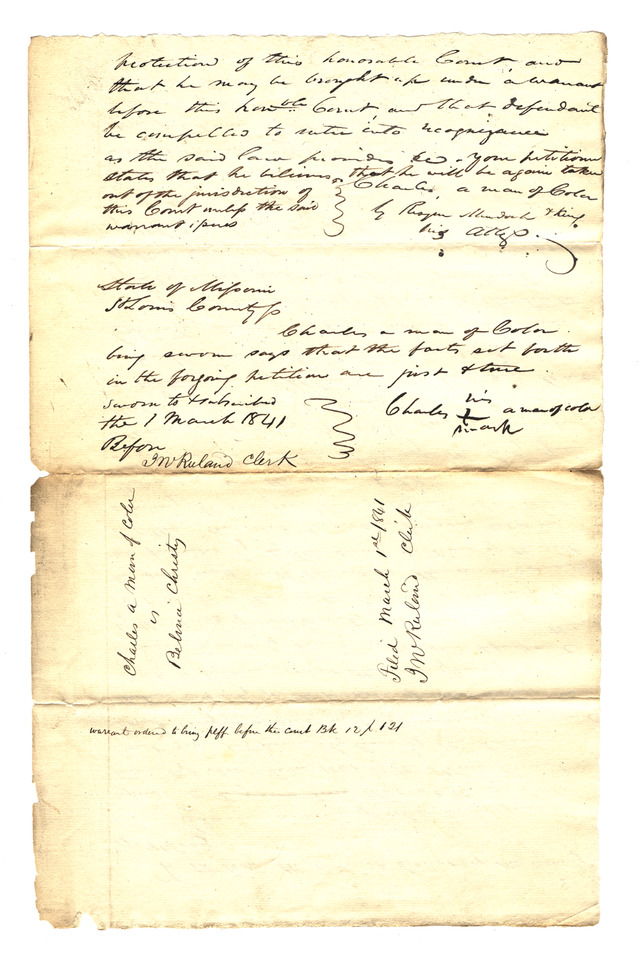 protection of this honorable Court and
that he may be brought up under a warrant
before this honble Court and that defendant
be compelled to enter into recognizance
as the said law provides &c. your petitioner
states that he believes that he will be again taken
out of the jurisdiction of
this Court unless the said
warrant issues
Charles, a man of Color
by Murdoch & King
his Attys.
State of Missouri
St Louis County ss
Charles a man of Color
being sworn says that the facts set forth
in the forgoing petition are just & true
sworn to & subscribed
the 1 March 1841
Before
J W Ruland Clerk
Charles his a man of color
mark
Charles a man of Color
vs
Belina Christy
Filed March 1st 1841
J W Ruland Clerk
warrant ordered to bring plff before the court Bk 12 p 121